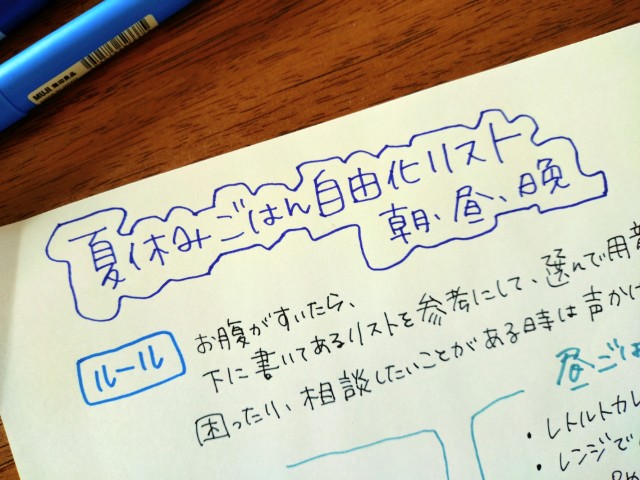 MUJI 無印良品
夏休みごはん自由化リスト
朝、昼、晩
ルール
お腹がすいたら、
下に書いてあるリストを参考にして、選んで用意
困ったり、相談したいことがある時は声かけ
昼ごは
・レトルトカレ
・レンジで